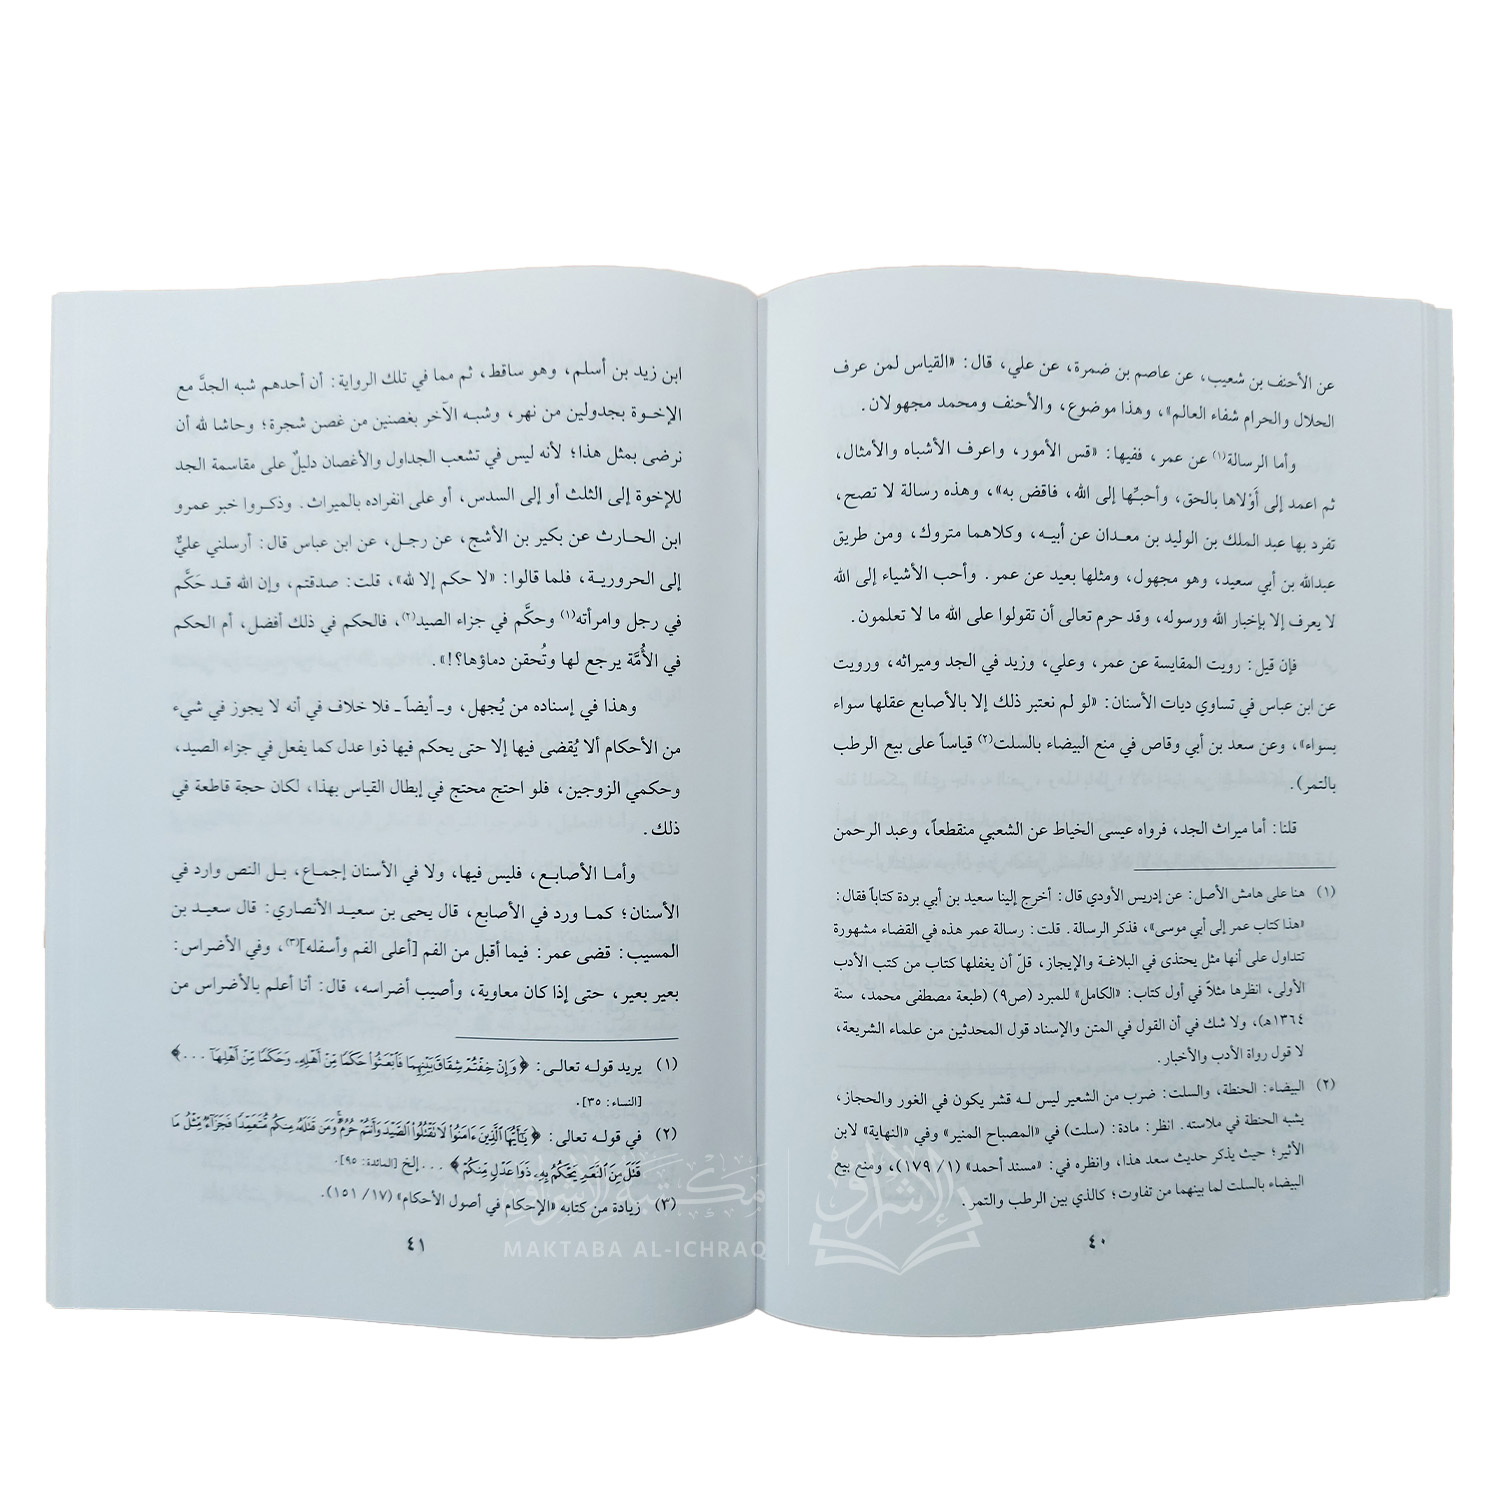 عن الأحنف بن شعيب، عن عاصم بن ضمرة، عن علي، قال: «القياس لمن عرف
الحلال والحرام شفاء العالم»، وهذا موضوع، والأحنف ومحمد مجهولان.
وأما الرسالة(١) عن عمر، ففيها: «قس الأمور، واعرف الأشباه والأمثال،
ثم اعمد إلى أَوْلاها بالحق، وأحبِّها إلى الله، فاقض به»، وهذه رسالة لا تصح،
تفرد بها عبد الملك بن الوليد بن معدان عن أبيه، وكلاهما متروك، ومن طريق
عبدالله بن أبي سعيد، وهو مجهول، ومثلها بعيد عن عمر. وأحب الأشياء إلى الله
لا يعرف إلا بإخبار الله ورسوله، وقد حرم تعالى أن تقولوا على الله ما لا تعلمون.
فإن قيل: رويت المقايسة عن عمر، وعلي، وزيد في الجد وميراثه، ورويت
عن ابن عباس في تساوي ديات الأسنان: «لو لم نعتبر ذلك إلا بالأصابع عقلها سواء
بسواء»، وعن سعد بن أبي وقاص في منع البيضاء بالسلت(٢) قياساً على بيع الرطب
بالتمر).
قلنا: أما ميراث الجد، فرواه عيسى الخياط عن الشعبي منقطعاً، وعبد الرحمن
(١) هنا على هامش الأصل: عن إدريس الأودي قال: أخرج إلينا سعيد بن أبي بردة كتاباً فقال:
«هذا كتاب عمر إلى أبي موسى»، فذكر الرسالة. قلت: رسالة عمر هذه في القضاء مشهورة
تتداول على أنها مثل يحتذى في البلاغة والإيجاز، قلّ أن يغفلها كتاب من كتب الأدب
الأولى، انظرها مثلاً في أول كتاب: «الكامل» للمبرد (ص٩) (طبعة مصطفى محمد، سنة
١٣٦٤هـ)، ولا شك في أن القول في المتن والإسناد قول المحدثين من علماء الشريعة،
لا قول رواة الأدب والأخبار.
(٢) البيضاء: الحنطة، والسلت: ضرب من الشعير ليس له قشر يكون في الغور والحجاز،
يشبه الحنطة في ملاسته. انظر: مادة: (سلت) في «المصباح المنير» وفي «النهاية» لابن
الأثير؛ حيث يذكر حديث سعد هذا، وانظره في: «مسند أحمد» (١/ ١٧٩)، ومنع بيع
البيضاء بالسلت لما بينهما من تفاوت؛ كالذي بين الرطب والتمر.
٤٠
ابن زيد بن أسلم، وهو ساقط، ثم مما في تلك الرواية: أن أحدهم شبه الجدَّ مع
الإخوة بجدولين من نهر، وشبه الآخر بغصنين من غصن شجرة؛ وحاشا لله أن
نرضى بمثل هذا؛ لأنه ليس في تشعب الجداول والأغصان دليلٌ على مقاسمة الجد
للإخوة إلى الثلث أو إلى السدس، أو على انفراده بالميراث. وذكروا خبر عمرو
ابن الحارث عن بكير بن الأشج، عن رجل، عن ابن عباس قال: أرسلني عليٌّ
إلى الحرورية، فلما قالوا: «لا حكم إلا لله»، قلت: صدقتم، وإن الله قد حَكَّم
في رجل وامرأته(١) وحكَّم في جزاء الصيد(٢)، فالحكم في ذلك أفضل، أم الحكم
في الأُمَّة يرجع لها وتُحقن دماؤها؟!».
وهذا في إسناده من يُجهل، وـ أيضاً ـ فلا خلاف في أنه لا يجوز في شيء
من الأحكام ألا يُقضى فيها إلا حتى يحكم فيها ذوا عدل كما يفعل في جزاء الصيد،
وحكمي الزوجين، فلو احتج محتج في إبطال القياس بهذا، لكان حجة قاطعة في
ذلك.
وأما الأصابع، فليس فيها، ولا في الأسنان إجماع، بل النص وارد في
الأسنان؛ كما ورد في الأصابع، قال يحيى بن سعيد الأنصاري: قال سعيد بن
المسيب: قضى عمر: فيما أقبل من الفم [أعلى الفم وأسفله](٣)، وفي الأضراس:
بعير بعير، حتى إذا كان معاوية، وأصيب أضراسه، قال: أنا أعلم بالأضراس من
(١) يريد قوله تعالى: ﴿وَإِنْ خِفْتُمْ شِقَاقَ بَيْنِهِمَا فَابْعَثُوا حَكَمًا مِّنْ أَهْلِهِ وَحَكَمًا مِّنْ أَهْلِهَا ...﴾
[النساء: ٣٥].
(٢) في قوله تعالى: ﴿يَٰٓأَيُّهَا الَّذِينَ ءَامَنُوا لَا تَقْتُلُوا الصَّيْدَ وَأَنتُمْ حُرُمٌ وَمَن قَتَلَهُ مِنكُم مُّتَعَمِّدًا فَجَزَآءٌ مِّثْلُ مَا
قَتَلَ مِنَ النَّعَمِ يَحْكُمُ بِهِ ذَوَا عَدْلٍ مِّنكُمْ﴾ ... إلخ [المائدة: ٩٥].
(٣) زيادة من كتابه «الإحكام في أصول الأحكام» (١٧/ ١٥١).
٤١
مكتبة الإشراق
الإشراق
MAKTABA AL-ICHRAQ